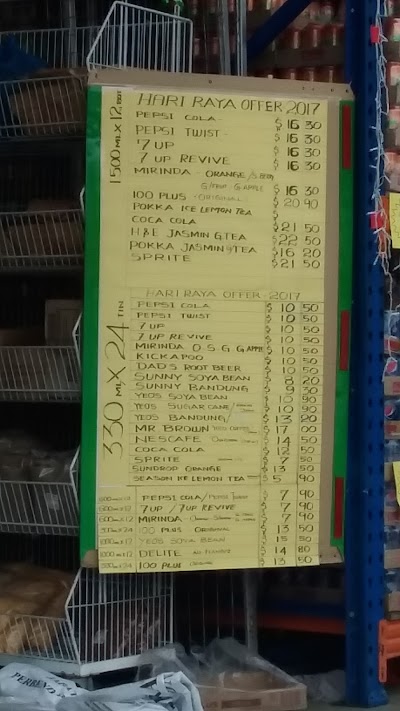 1500 ML X 12 BOT
HARI RAYA OFFER 2017
PEPSI COLA - $ 16 30
PEPSI TWIST - $ 16 30
7 UP $ 16 30
7 UP REVIVE $ 16 30
MIRINDA - ORANGE/S.BERRY
G APPLE $ 16 30
100 PLUS - ORIGINAL $ 20 90
POKKA ICE LEMON TEA $
COCA COLA $ 21 50
H&E JASMIN G TEA $ 22 50
POKKA JASMIN G TEA $ 16 20
SPRITE $ 21 50
330 ML X 24 TIN
HARI RAYA OFFER 2017
PEPSI COLA $ 10 50
PEPSI TWIST $ 10 50
7 UP $ 10 50
7 UP REVIVE $ 10 50
MIRINDA O S G G APPLE $ 10 50
KICKAPOO $ 10 50
DADS ROOT BEER $ 10 50
SUNNY SOYA BEAN $ 8 20
SUNNY BANDUNG $ 9 30
YEOS SOYA BEAN $ 10 90
YEOS SUGAR CANE/ $ 10 90
YEOS BANDUNG/ $ 13 20
MR BROWN $ 17 00
NESCAFE $ 14 50
COCA COLA $ 12 50
SPRITE $ 50
SUNDROP ORANGE 50
SEASON ICE LEMON TEA 90
PEPSI COLA/ $ 7 90
7 UP / 7 UP REVIVE $ 7 90
MIRINDA $ 7 90
100 PLUS ORIGINAL $ 13 50
YEOS SOYA BEAN $ 15 50
DELITE $ 14 80
100 PLUS $ 13 50